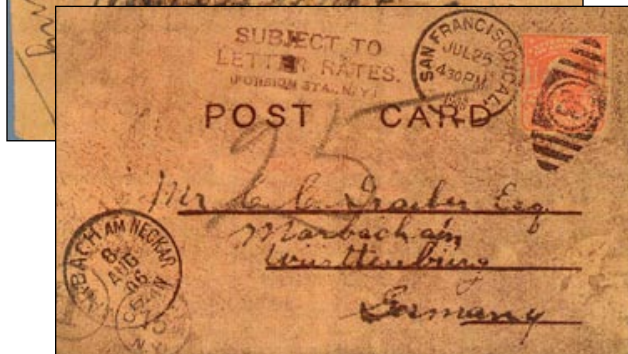 SUBJECT TO
LETTER RATES.
(FOREIGN STA., N.Y.)
SAN FRANCISCO, CAL.
JUL 25
430 PM
POST CARD
25
Mr
Esq
Marbach
Württenburg
Germany
MARBACH AM NECKAR
8
AUG
06